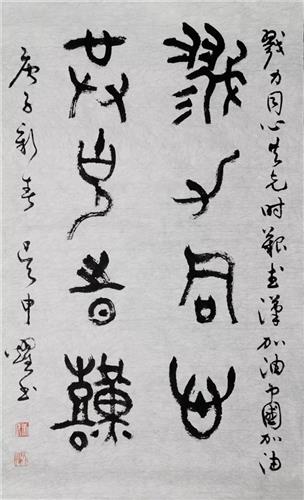 戮力同心共克时艰武汉加油中国加油
戮力同心
共克时艰
庚子新春吴申耀书